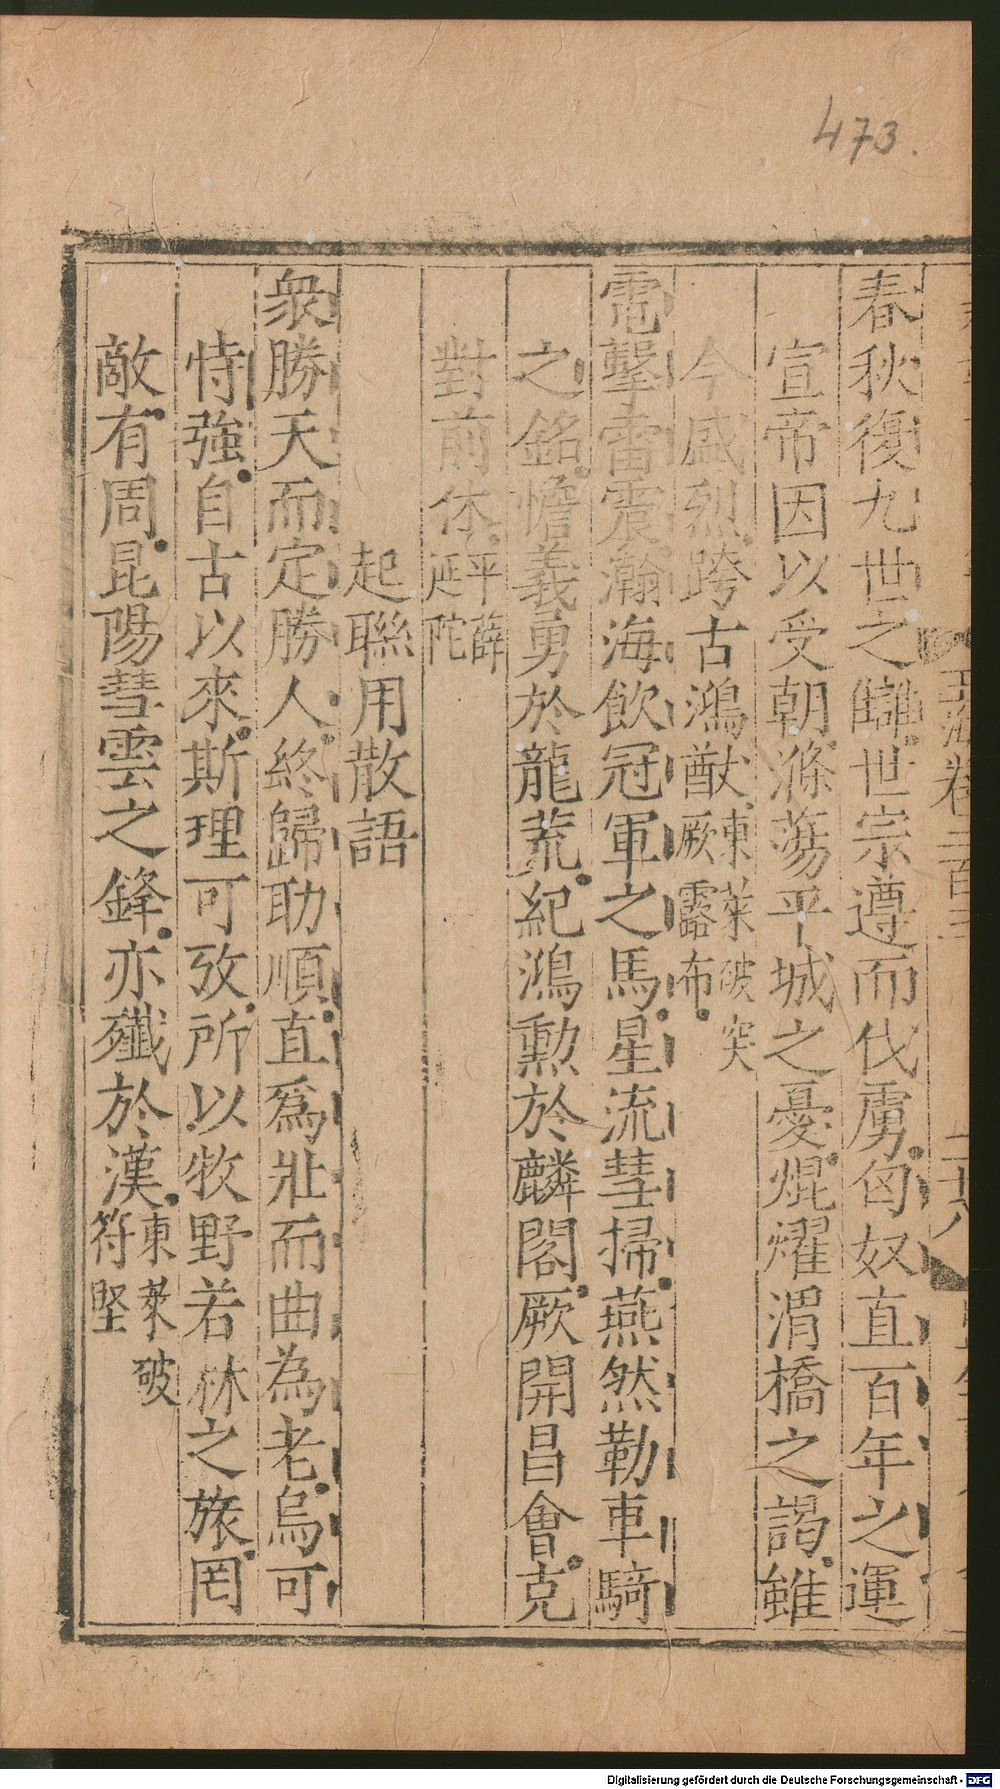 473.
玉海卷二百三
二十八
春秋復九世之讎世宗遵而伐虜匈奴直百年之運
宣帝因以受朝滌蕩平城之憂焜燿渭橋之謁雖
今盛烈跨古鴻猷東萊破突厥露布
電擊雷震瀚海飲冠軍之馬星流彗掃燕然勒車騎
之銘憺義勇於龍荒紀鴻勳於麟閣厥開昌會克
對前休平薛延陀
起聯用散語
衆勝天而定勝人終歸助順直爲壯而曲為老烏可
恃強自古以來斯理可攷所以牧野若林之旅罔
敵有周昆陽彗雲之鋒亦殲於漢東萊破符堅
Digitalisierung gefördert durch die Deutsche Forschungsgemeinschaft - DFG